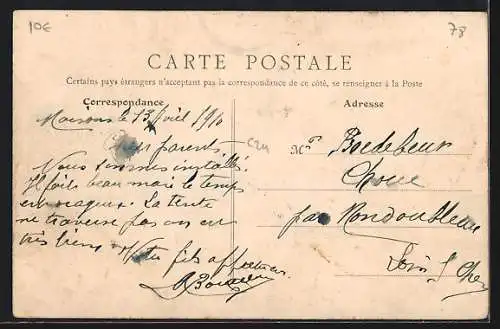 10€
78
CARTE POSTALE
Certains pays étrangers n'acceptant pas la correspondance de ce côté, se renseigner à la Poste
Correspondance
Maisons le 13 Avril 1910
Chers parents,
Nous sommes installés.
Il fait beau mais le temps
est nuageux. La tente
ne traverse pas on est
très bien. Votre fils affectueux
Adresse
Mr
Choue
par Mondoubleau
Loir & Cher